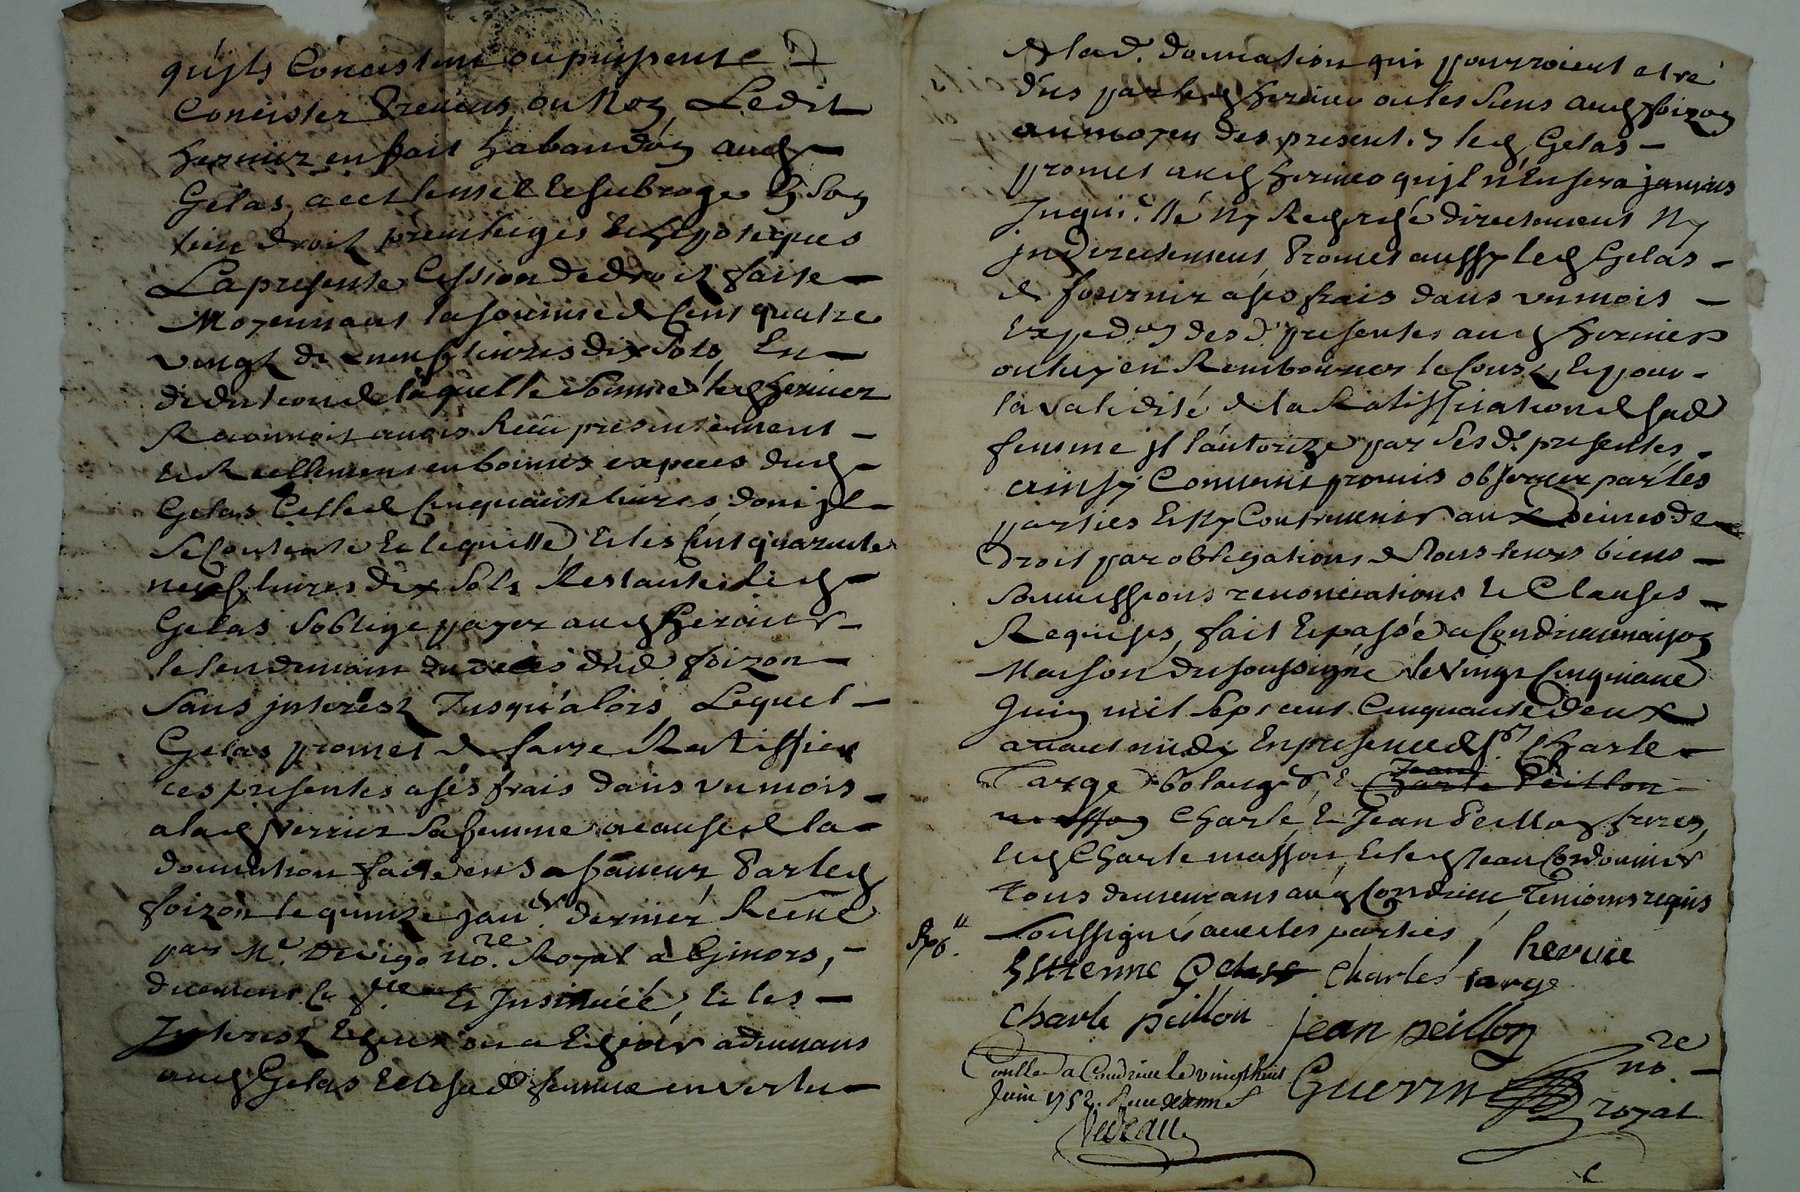 qu'ils Concistent ou puissent
Concister Prevus, ou Non, Ledit
hervier en fait habandon aud.
Gelas, accth
tien droit privileges et hypoteques
La presente Cession de droit faite
Moyennant la somme de Cent quatre
vingt dix neuf livres dix sols, En
deduction de laquelle Somme led. hervier
Reconnoit avoir Receu presentement
et Reellement en bonnes expeces dud.
Gelas Celle de Cinquante livres, dont jl
se Contente et le quitte, Et les Cent quarante
neuf livres dix sols Restantes led.
Gelas soblige payer aud. hervier
le lendemain du deces dud. foizon
Sans jnterest Jusqu'alors, Lequel
Gelas promet de faire Rattiffier
ces presentes a ses frais dans un mois
a lad. verrier Sa femme a cause de la
donnation faite en Sa faveur Par led.
foizon le quinze janr. dernier Receüe
par Mr. no.re Royal a Givors,
duement Co et Insinuée, Et les
Interest
aud. Gelas et a sad. femme en vertu
de lad. donnation qui pourroient etre
dus par led. hervier ou les Siens aud. foizon
au moyen des presentes led. Gelas
promet aud. hervier qu'jl n'En sera jamais
Inquietté Ny Recherché directement Ny
jndirectement, Promet aussy led. Gelas
de fournir a ses frais dans un mois
Expedon des d. presentes aud. hervier
ou luy en Rembourcer le Coust, Et pour
la validité de la Ratiffication de sad.
femme jl l'autorize par Ses d. presentes
ainsy Convenu promis observer par les
parties Et Ny Contrevenir aux peines de
Droit par obligations de Tous leurs biens
soumissions renonciations et Clauses
Requises, fait Et passé a Condrieu maison
Maison du soussigné le vingt Cinquieme
Juin mil sept cent Cinquante deux
avant midy En presence de sr Charle
Farge bolanger, & Jean Charle Peillon
masson Charle & Jean Peillon freres,
led. Charle masson, & led. Jean Cordonnier
Tous demeurans aud. Condrieu Temoins requis
Soussignés avec les parties,
Exp.
hervier
Estienne Gelas Charles farge
Charle peillon jean peillon
Conllé a Condrieu le vingt huit
Juin 1752. Receu
Guerrin no.re royal